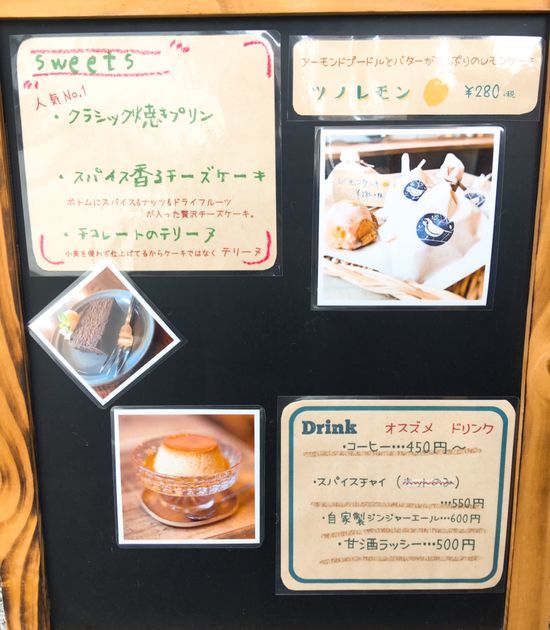 sweets
人気No.1
・クラシック焼きプリン
・スパイス香るチーズケーキ
ボトムにスパイス&ナッツ&ドライフルーツ
が入った贅沢チーズケーキ。
・チョコレートのテリーヌ
小麦を使わず仕上げてるからケーキではなく テリーヌ
アーモンドプードルとバターがたっぷりのレモンケーキ
ツノレモン ¥280+税
レモンケーキ
Drink オススメ ドリンク
・コーヒー…450円〜
・スパイスチャイ (ホットのみ)
…550円
・自家製ジンジャーエール…600円
・甘酒ラッシー…500円